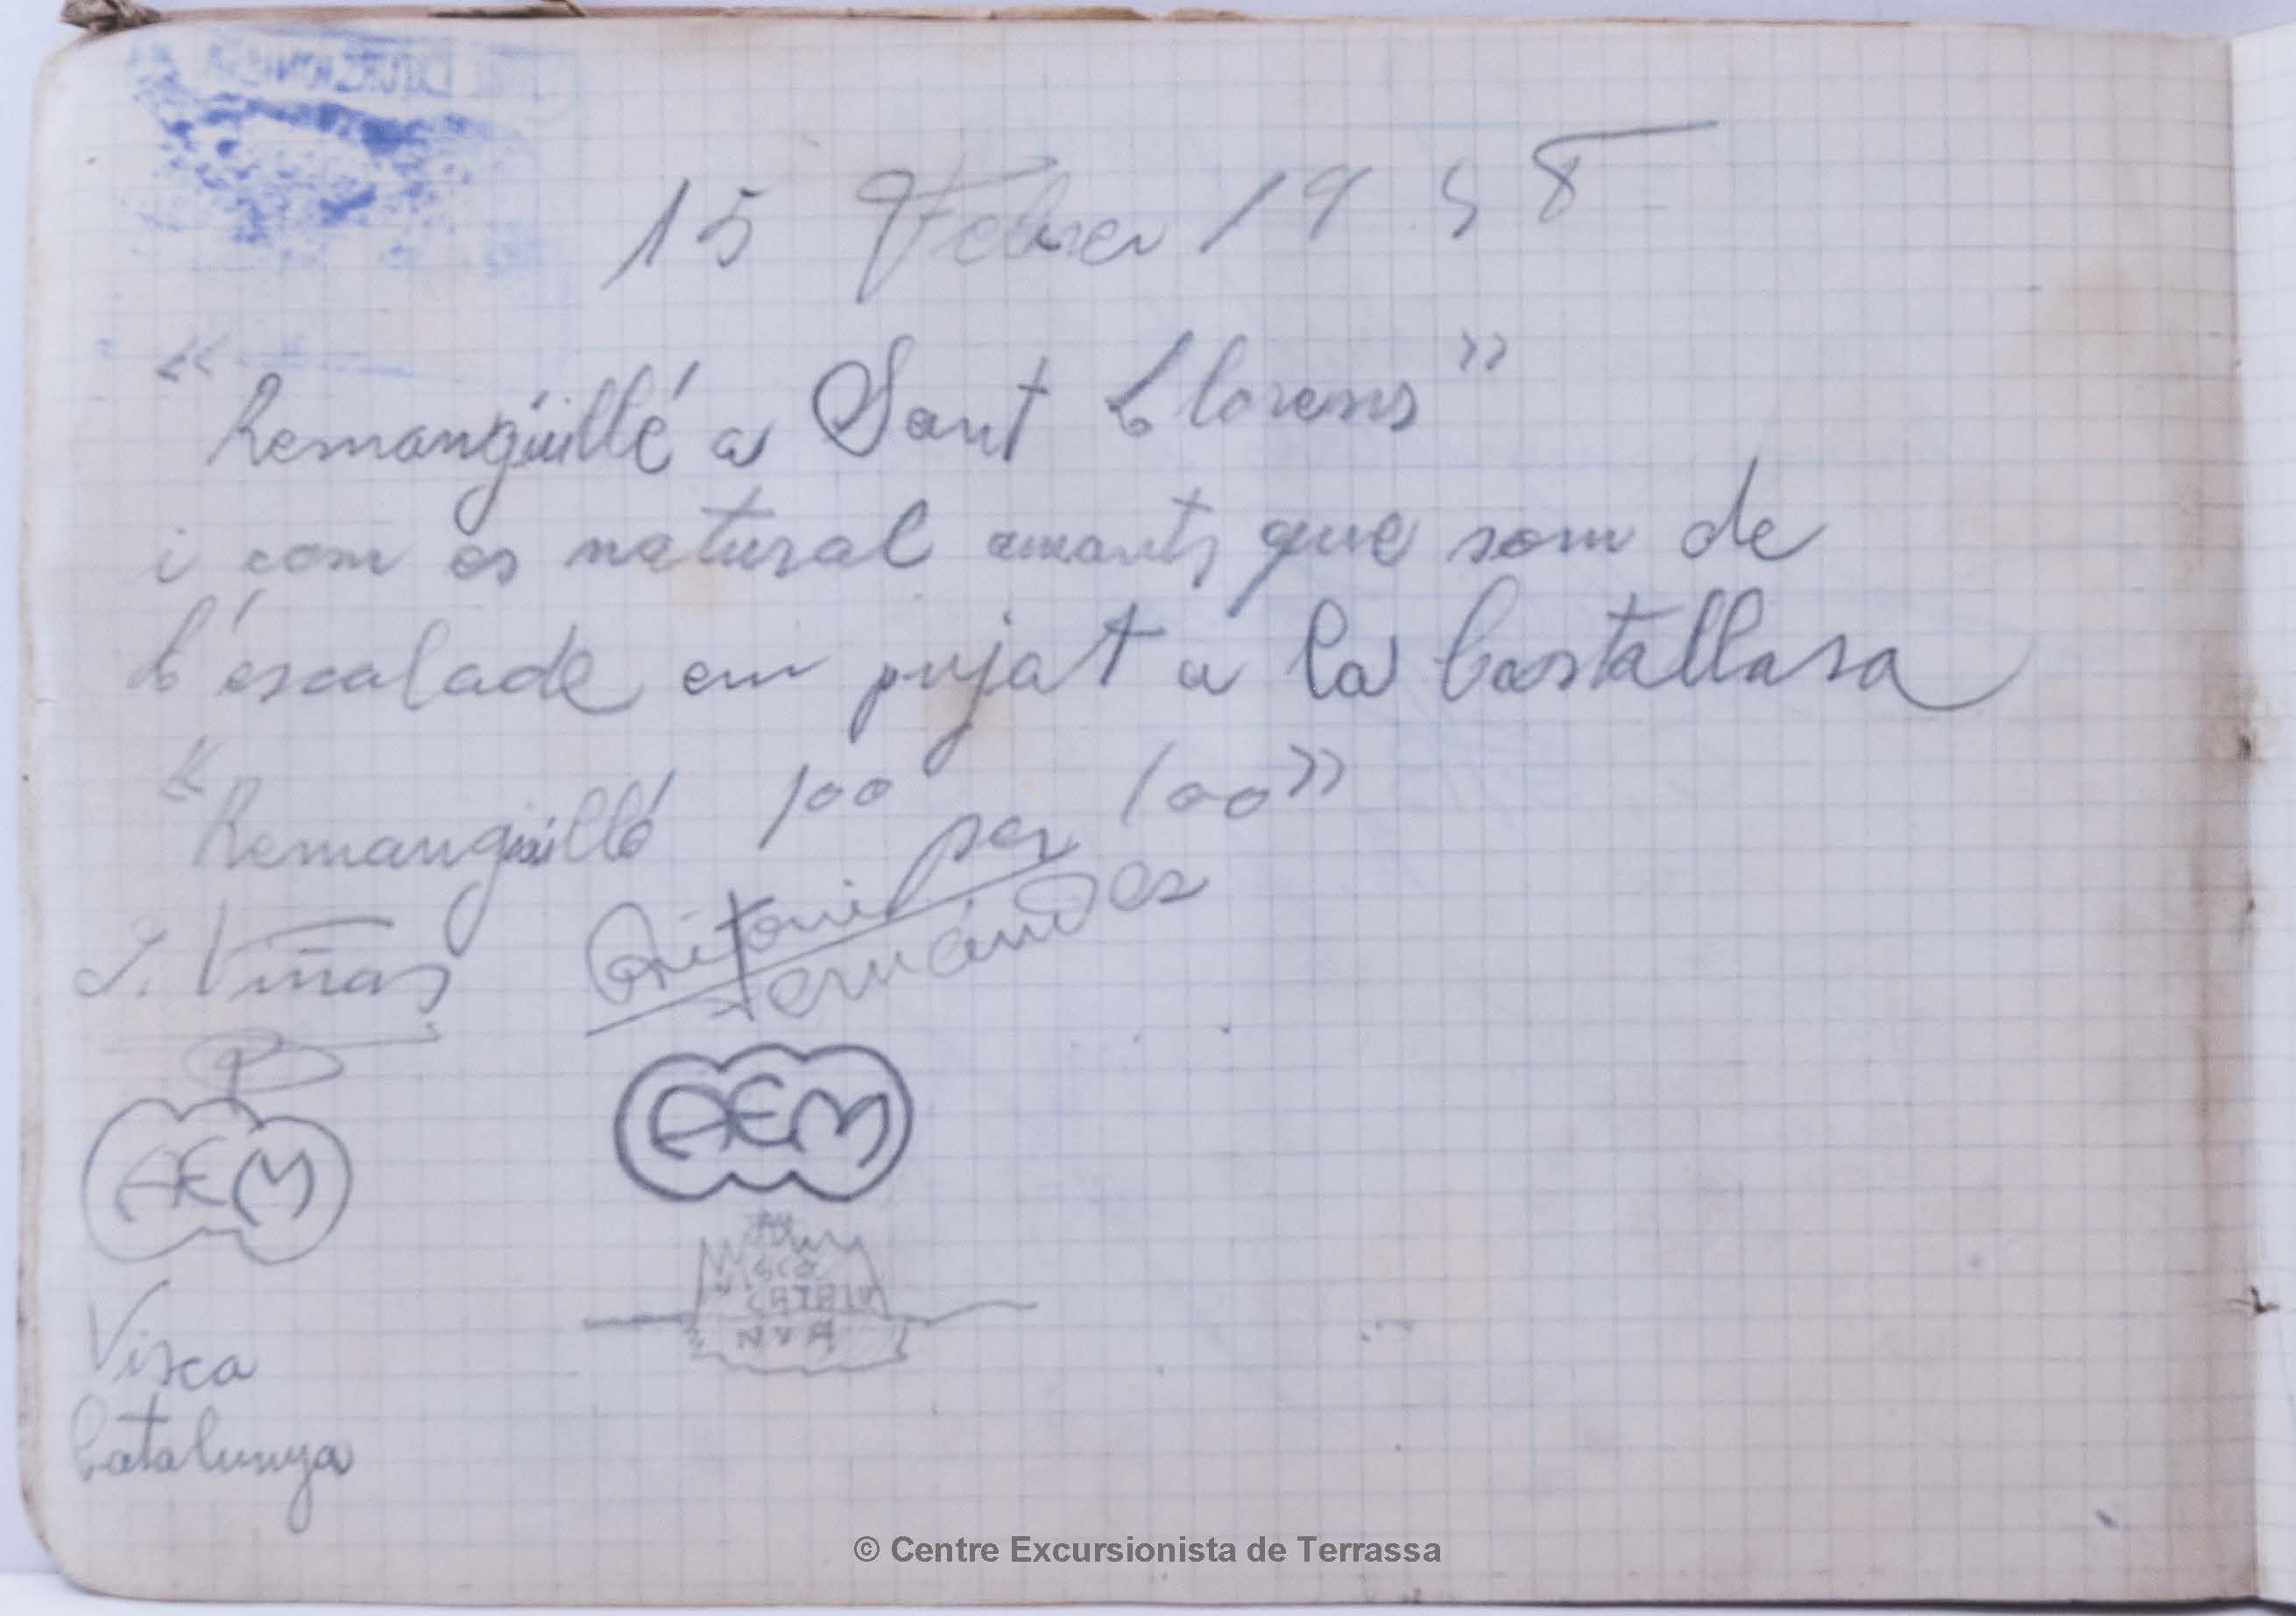 15 Febrer 1958
"Remangüillé a Sant Llorens"
i com es natural amants que som de
l'escalade em pujat a la Castallasa
"Remangüillé 100 per 100"
J. Viñas
Antonio Fernández
AEM
AEM
VISCA
CATALU
NYA
Visca
Catalunya
© Centre Excursionista de Terrassa